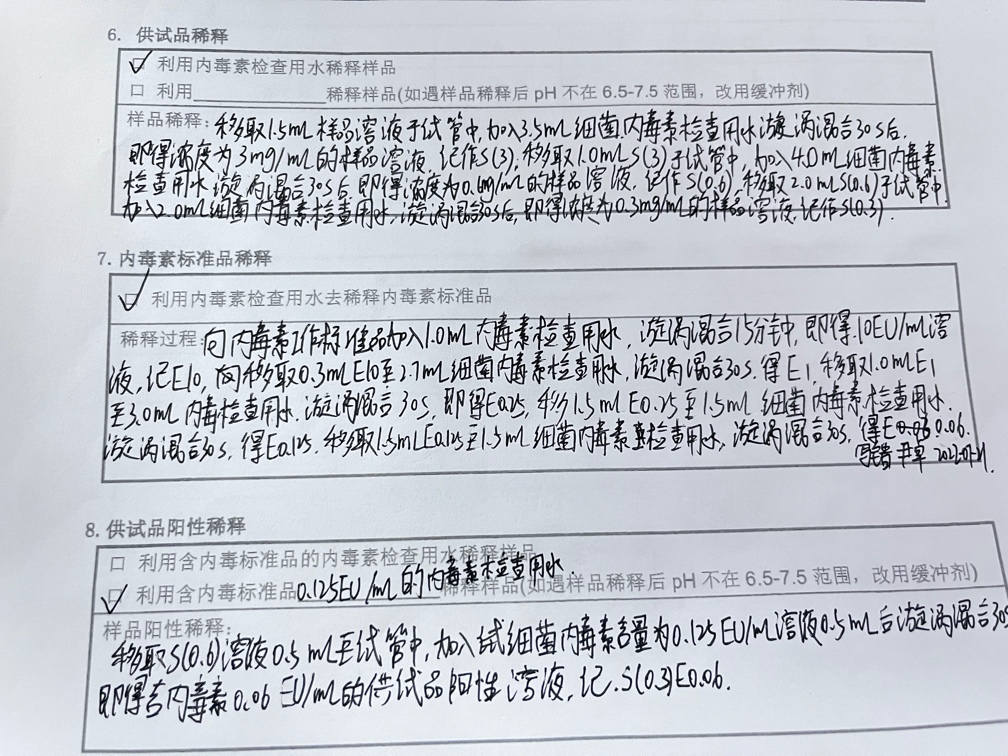 6. 供试品稀释
☑ 利用内毒素检查用水稀释样品
□ 利用____________稀释样品(如遇样品稀释后 pH 不在 6.5-7.5 范围，改用缓冲剂)
样品稀释：移取1.5mL样品溶液于试管中,加入3.5mL细菌内毒素检查用水漩涡混合30s后.
即得浓度为3mg/mL的样品溶液,记作S(3),移取1.0mLS(3)于试管中,加入4.0mL细菌内毒素
检查用水,漩涡混合30s后,即得浓度为0.6mg/mL的样品溶液,记作S(0.6),移取2.0mLS(0.6)于试管中.
加入2.0mL细菌内毒素检查用水,漩涡混合30s后,即得浓度为0.3mg/mL的样品溶液.记作S(0.3).
7. 内毒素标准品稀释
☑ 利用内毒素检查用水去稀释内毒素标准品
稀释过程：向内毒素工作标准品加入1.0mL内毒素检查用水，漩涡混合15分钟中,即得10EU/mL溶
液,记E10,移取0.3mLE10至2.7mL细菌内毒素检查用水,漩涡混合30s.得E1,移取1.0mLE1
至3.0mL内毒检查用水.漩涡混合30s,即得E0.25,移1.5mLE0.25至1.5mL细菌内毒素检查用水.
漩涡混合30s,得E0.125.移取1.5mLE0.125至1.5mL细菌内毒素检查用水,漩涡混合30s,得E0.06.
写错 2022-07-21.
8. 供试品阳性稀释
□ 利用含内毒标准品的内毒素检查用水稀释样品
☑ 利用含内毒标准品0.125EU/mL的内毒素检查用水稀释样品(如遇样品稀释后 pH 不在 6.5-7.5 范围，改用缓冲剂)
样品阳性稀释：
移取S(0.6)溶液0.5mL至试管中,加入细菌内毒素含量为0.125EU/mL溶液0.5mL后漩涡混合30s
即得含内毒素0.06EU/mL的供试品阳性溶液,记.S(0.3)E0.06.